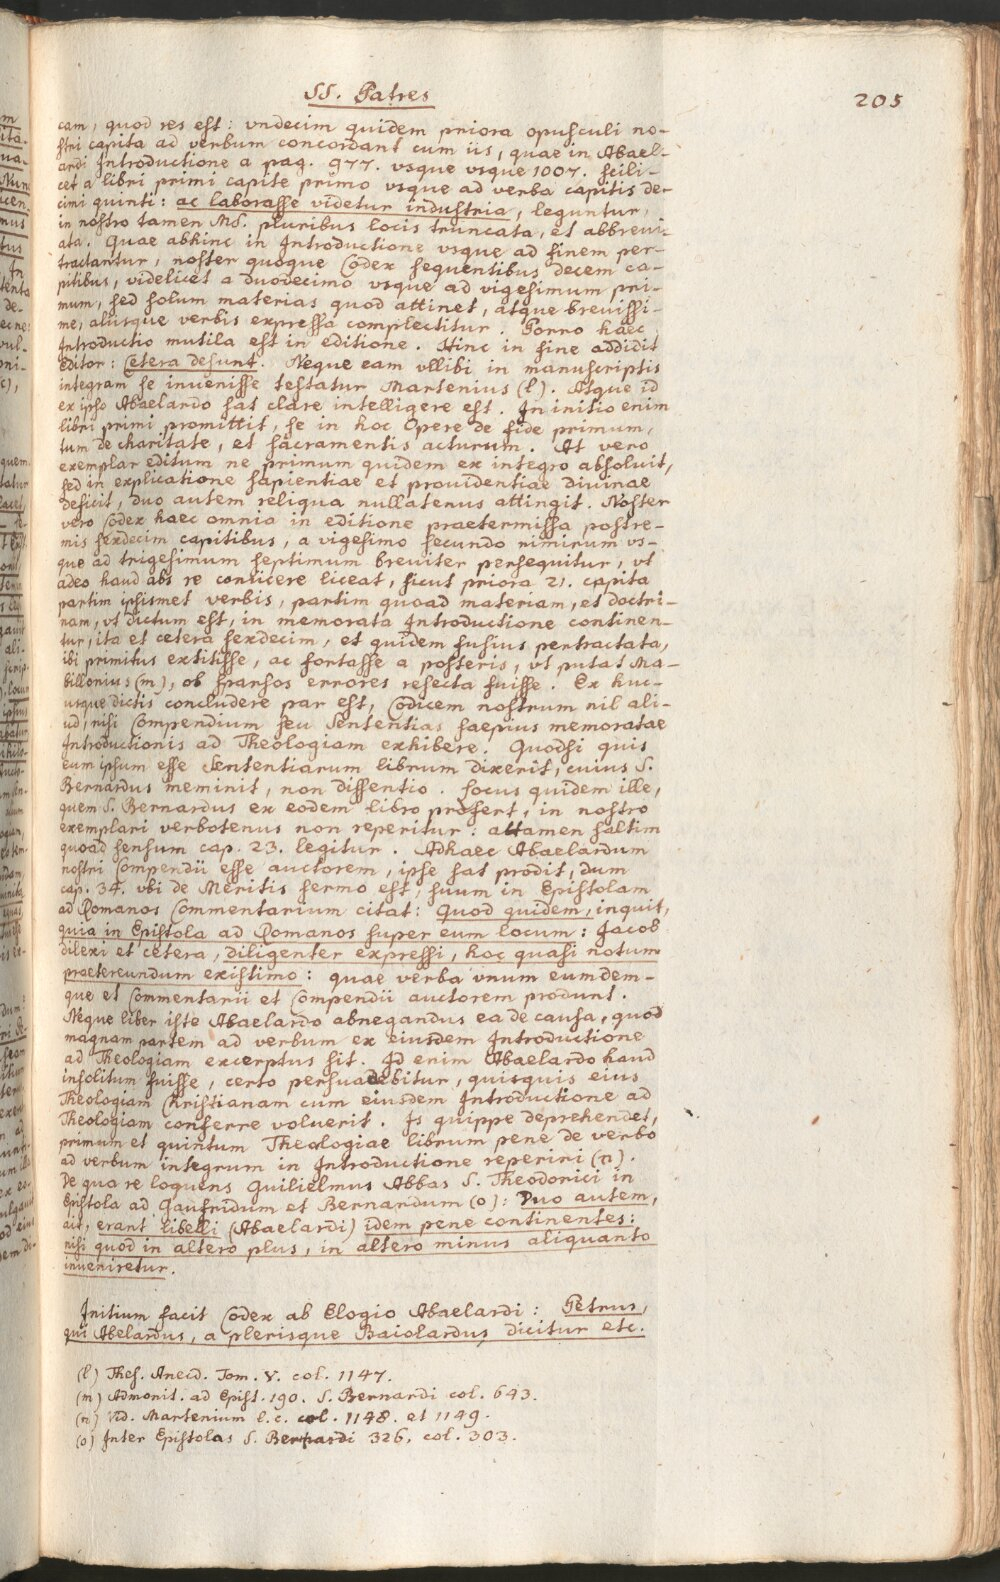 SS. Patres
205
cam, quod res est: vndecim quidem priora opusculi no-
stri capita ad verbum concordant cum iis, quae in Abael-
ardi Introductione a pag. 977. vsque vsque 1007. scili-
cet a libri primi capite primo vsque ad verba capitis de-
cimi quinti: ac laborasse videtur industria, leguntur,
in nostro tamen MS. pluribus locis truncata, et abbreui-
ata. Quae abhinc in Introductione vsque ad finem per-
tractantur, noster quoque Codex sequentibus decem ca-
pitibus, videlicet a duodecimo vsque ad vigesimum pri-
mum, sed solum materias quod attinet, atque breuissi-
me, aliisque verbis expressa complectitur. Porro haec
Introductio mutila est in editione. Hinc in fine addidit
Editor: Cetera desunt. Neque eam vllibi in manuscriptis
integram se inuenisse testatur Martenius (l). Atque id
ex ipso Abaelardo sat clare intelligere est. In initio enim
libri primi promittit, se in hoc Opere de fide primum,
tum de charitate, et sacramentis acturum. At vero
exemplar editum ne primum quidem ex integro absoluit,
sed in explicatione sapientiae et prouidentiae diuinae
deficit, duo autem reliqua nullatenus attingit. Noster
vero Codex haec omnia in editione praetermissa postre-
mis sexdecim capitibus, a vigesimo secundo nimirum vs-
que ad trigesimum septimum breuiter persequitur, vt
adeo haud abs re conijcere liceat, sicut priora 21. capita
partim ipsismet verbis, partim quoad materiam, et doctri-
nam, vt dictum est, in memorata Introductione continen-
tur, ita et cetera sexdecim, et quidem fusius pertractata,
ibi primitus extitisse, ac fortasse a posteris, vt putat Ma-
billonius (m), ob sparsos errores resecta fuisse. Ex huc-
usque dictis concludere par est, Codicem nostrum nil ali-
ud, nisi Compendium seu Sententias saepius memoratae
Introductionis ad Theologiam exhibere. Quodsi quis
eum ipsum esse Sententiarum librum dixerit, cuius S.
Bernardus meminit, non dissentio. Locus quidem ille,
quem S. Bernardus ex eodem libro profert, in nostro
exemplari verbotenus non reperitur: attamen saltim
quoad sensum cap. 23. legitur. Adhaec Abaelardum
nostri Compendii esse auctorem, ipse sat prodit, dum
cap. 34. vbi de Meritis sermo est, suum in Epistolam
ad Romanos Commentarium citat: Quod quidem, inquit,
quia in Epistola ad Romanos super eum locum: Jacob
dilexi et cetera, diligenter expressi, hoc quasi notum
praetereundum existimo: quae verba vnum eumdem-
que et Commentarii et Compendii auctorem produnt.
Neque liber iste Abaelardo abnegandus ea de causa, quod
magnam partem ad verbum ex eiusdem Introductione
ad Theologiam excerptus sit. Id enim Abaelardo haud
insolitum fuisse, certo persuadebitur, quisquis eius
Theologiam Christianam cum eiusdem Introductione ad
Theologiam conferre voluerit. Is quippe deprehendet,
primum et quintum Theologiae librum pene de verbo
ad verbum integrum in Introductione reperiri (n).
De qua re loquens Guilielmus Abbas S. Theodorici in
Epistola ad Gaufridum et Bernardum (o): Duo autem,
ait, erant libelli (Abaelardi) idem pene continentes:
nisi quod in altero plus, in altero minus aliquanto
inueniretur.
Initium facit Codex ab Elogio Abaelardi: Petrus,
qui Abelardus, a plerisque Baiolardus dicitur etc.
(l) Thes. Anecd. Tom. V. col. 1147.
(m) Admonit. ad Epist. 190. S. Bernardi col. 643.
(n) Vid. Martenium l. c. col. 1148. et 1149.
(o) Inter Epistolas S. Bernardi 326. col. 303.